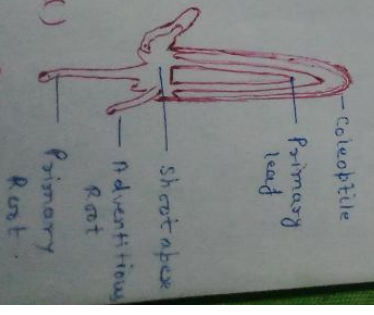 Coleoptile
Primary
leaf
Shoot apex
Adventitious
Root
Primary
Root.